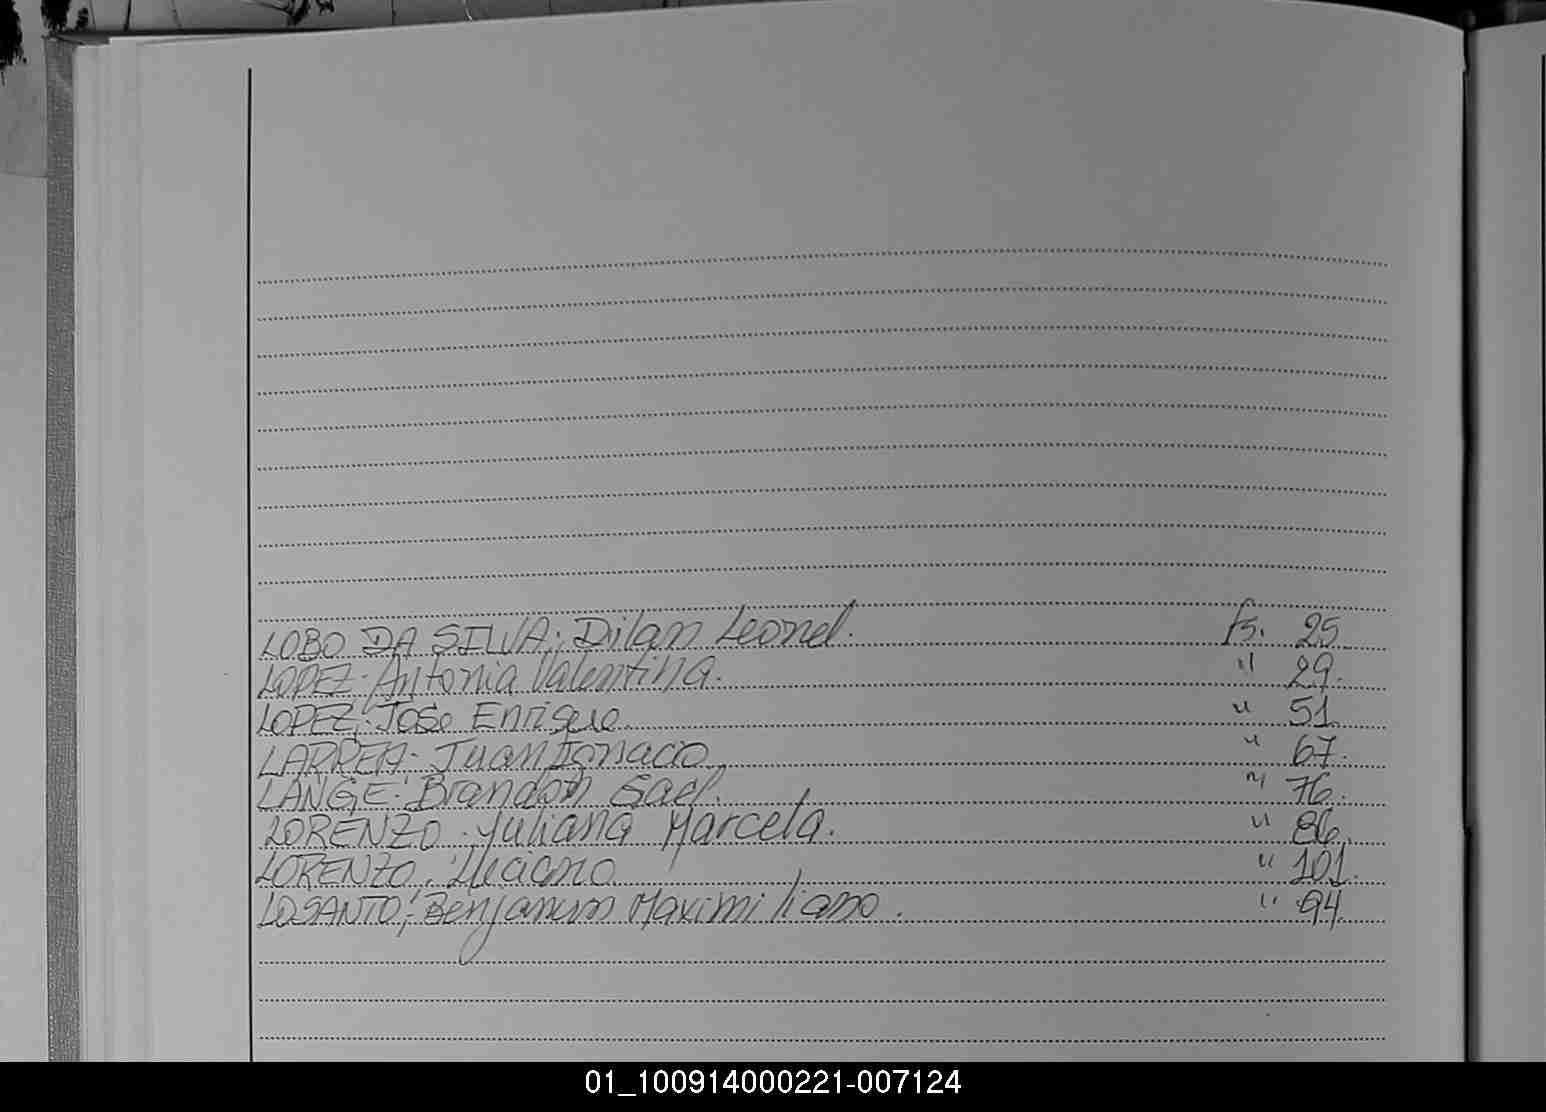 LOBO DA SILVA; Dilan Leonel. fs. 25
LOPEZ- Antonia Valentina. " 29.
LOPEZ; Jose Enrique. " 51
LARREA- Juan Ignacio " 67.
LANGE- Brandon Gael. " 76.
LORENZO- Yuliana Marcela. " 86.
LORENZO, " 101.
LOSANTO,- Benjamin Maximiliano. " 94.
01_100914000221-007124